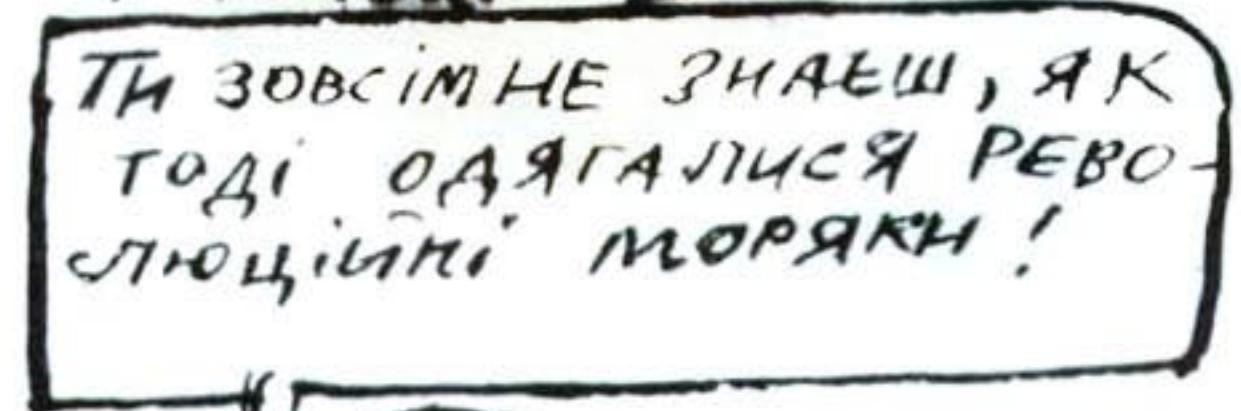 Ти зовсім не знаєш, як
тоді одягалися рево-
люційні моряки!